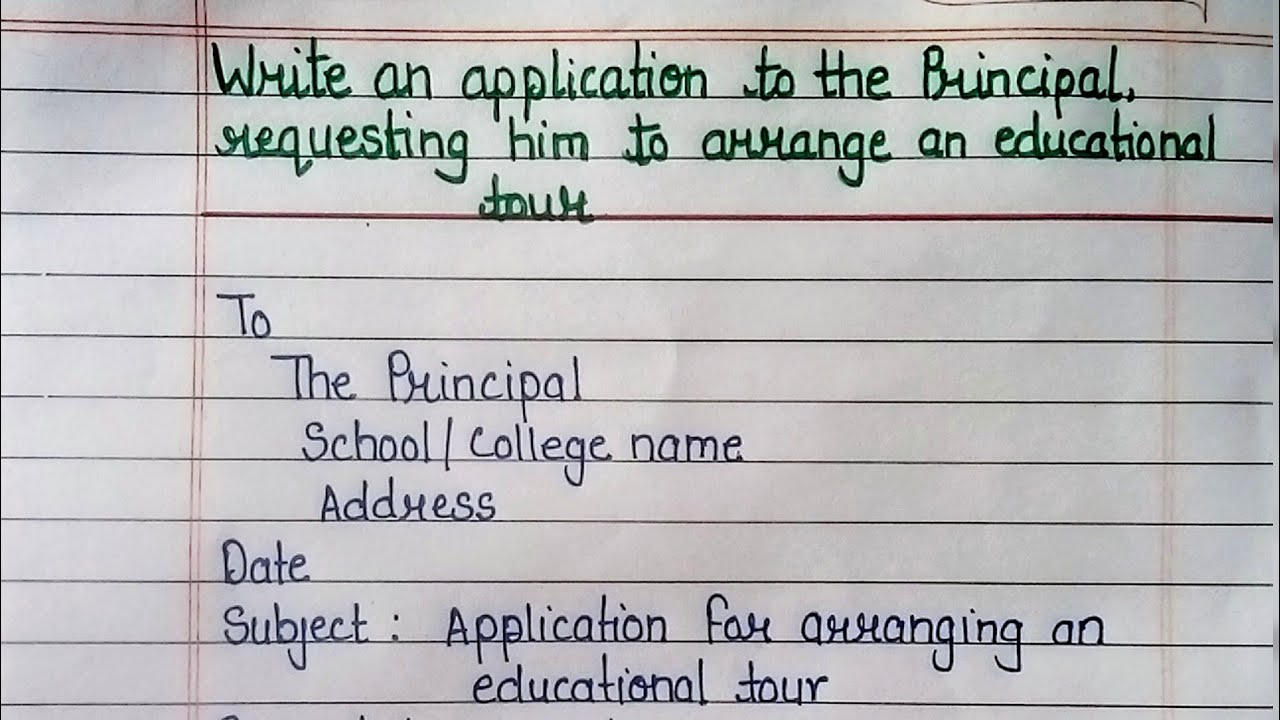 Write an application to the Principal,
requesting him to arrange an educational
tour
To
The Principal
School/College name
Address
Date
Subject : Application for arranging an
educational tour